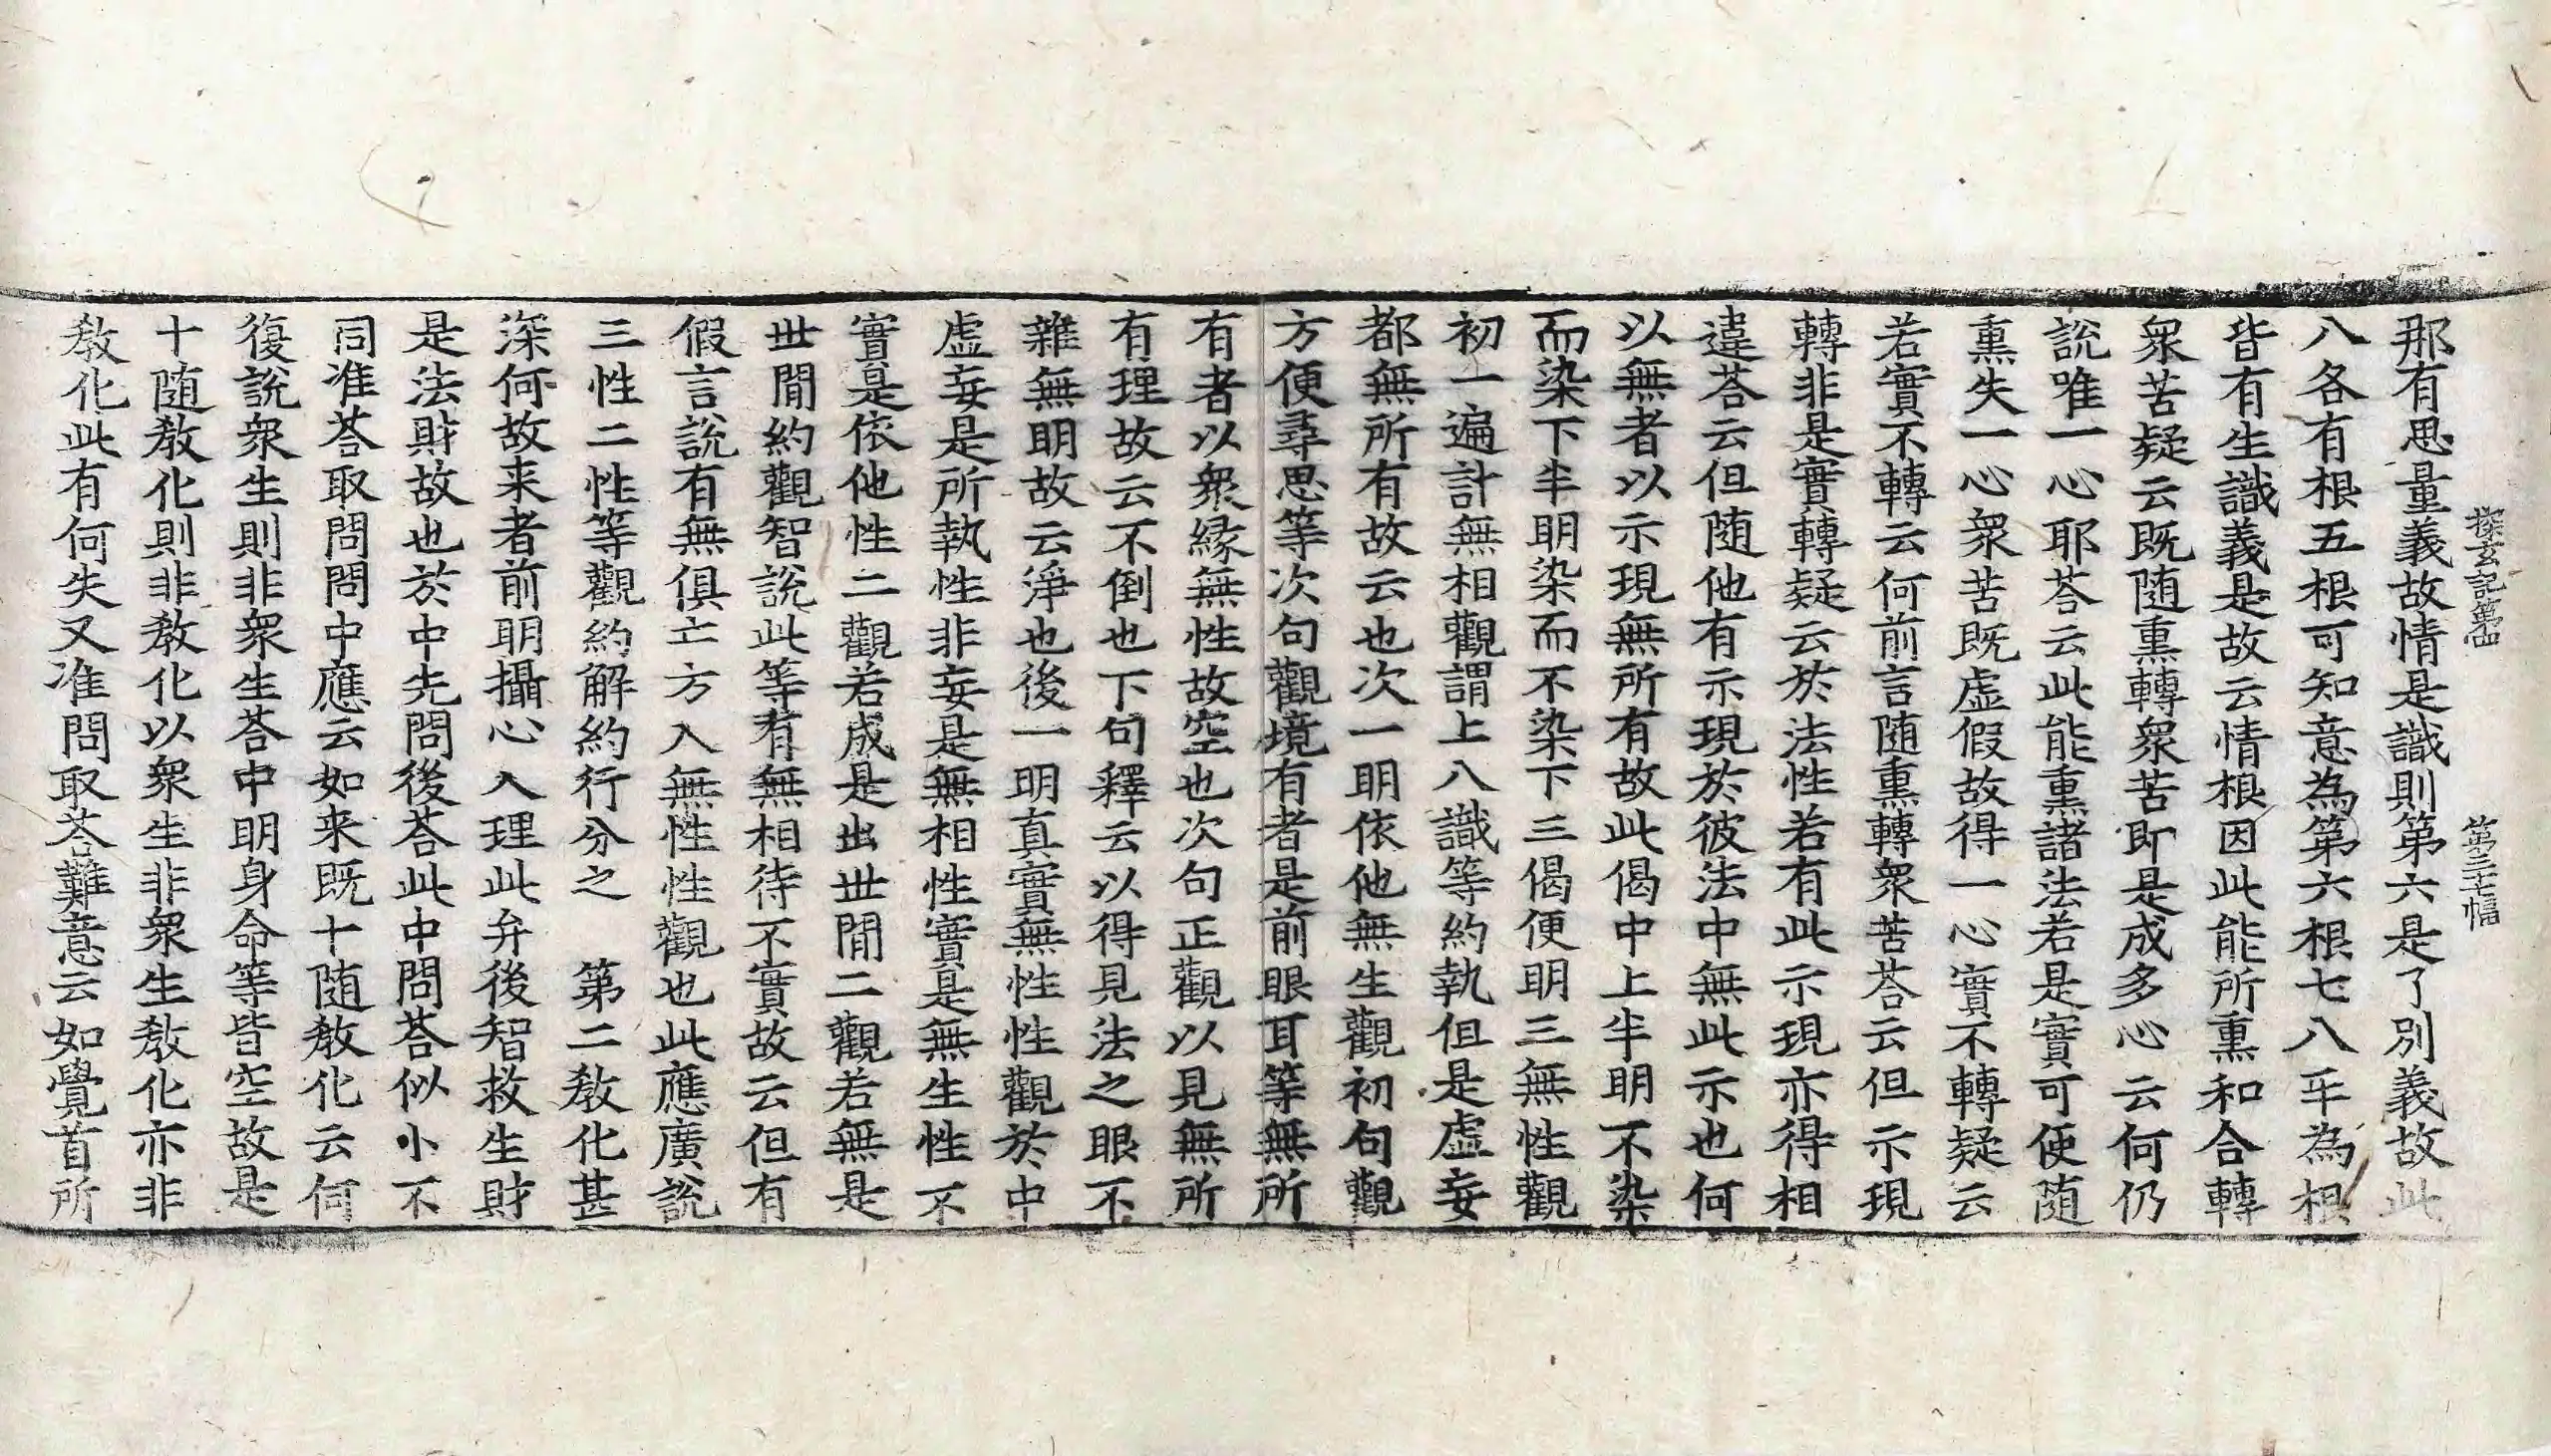 探玄記第四 第三十七幅
那有思量義故情是識則第六是了別義故此
八各有根五根可知意為第六根七八平為根
皆有生識義是故云情根因此能所熏和合轉
衆苦疑云既随熏轉衆苦即是成多心云何仍
說唯一心耶荅云此能熏諸法若是實可使随
熏失一心衆苦既虚假故得一心實不轉疑云
若實不轉云何前言随熏轉衆苦荅云但示現
轉非是實轉疑云於法性若有此示現亦得相
違荅云但随他有示現於彼法中無此示也何
以無者以示現無所有故此偈中上半明不染
而染下半明染而不染下三偈便明三無性觀
初一遍計無相觀謂上八識等約執但是虚妄
都無所有故云也次一明依他無生觀初句觀
方便尋思等次句觀境有者是前眼耳等無所
有者以衆縁無性故空也次句正觀以見無所
有理故云不倒也下句釋云以得見法之眼不
雜無明故云淨也後一明真實無性性觀於中
虚妄是所執性非妄是無相性實是無生性不
實是依他性二觀若成是出世間二觀若無是
世間約觀智說此等有無相待不實故云但有
假言說有無俱亡方入無性性觀也此應廣說
三性二性等觀約解約行分之 第二教化甚
深何故来者前明攝心入理此弁後智救生財
是法財故也於中先問後荅此中問荅似小不
同准荅取問問中應云如来既十随教化云何
復說衆生則非衆生荅中明身命等皆空故是
十随教化則非教化以衆生非衆生教化亦非
教化此有何失又准問取荅難意云如覺首所